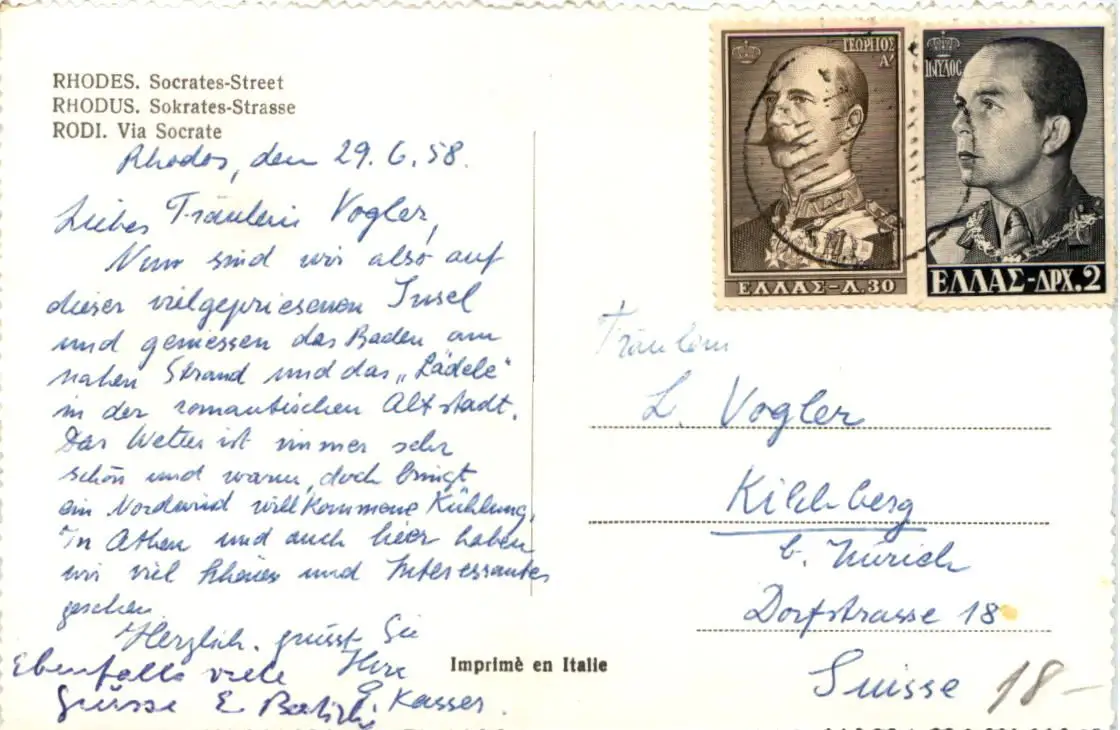 RHODES. Socrates-Street
RHODUS. Sokrates-Strasse
RODI. Via Socrate
Rhodos, den 29.6.58.
Liebes Fräulein Vogler,
Nun sind wir also auf
dieser vielgepriesenen Insel
und geniessen das Baden am
nahen Strand und das „Lädele"
in der romantischen Altstadt.
Das Wetter ist immer sehr
schön und warm, doch bringt
ein Nordwind willkommene Kühlung.
In Athen und auch hier haben
wir viel Schönes und Interessantes
gesehen.
Herzlich grüsst Sie
Ihre
Kasser.
Ebenfalls viele
Grüsse E
Imprimè en Italie
ΓΕΩΡΓΙΟΣ
Α'
ΕΛΛΑΣ-Λ.30
ΠΑΥΛΟΣ
ΕΛΛΑΣ-ΔΡΧ.2
Fräulein
L. Vogler
Kilchberg
b. Zürich
Dorfstrasse 18
Suisse
18-